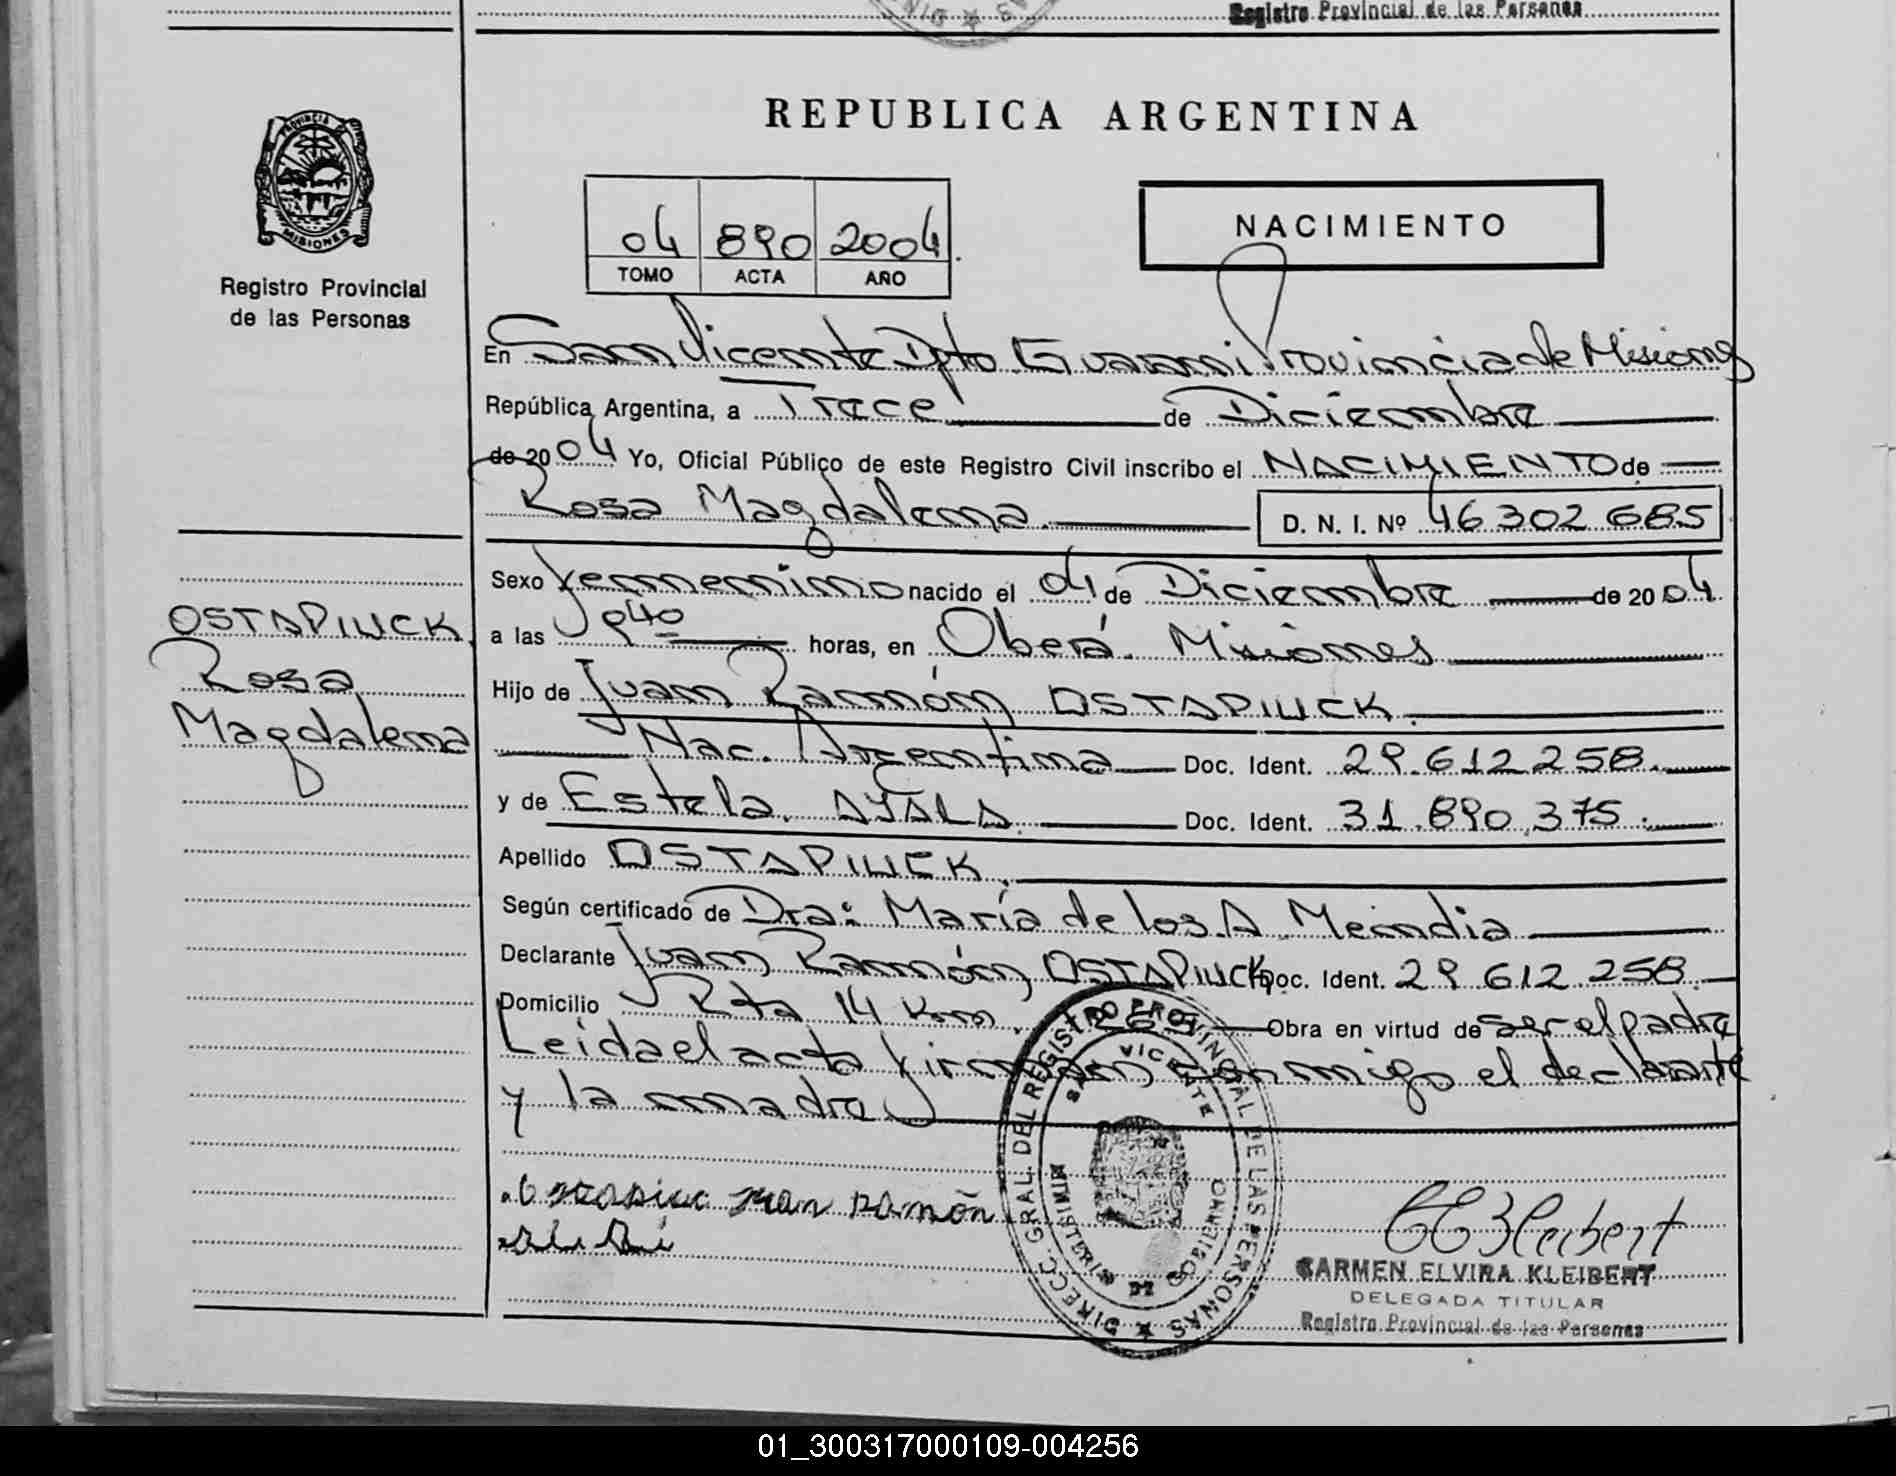 Registro Provincial de las Personas
REPUBLICA ARGENTINA
PROVINCIA DE
MISIONES
Registro Provincial
de las Personas
04 890 2004
TOMO ACTA AÑO
NACIMIENTO
En San Vicente Dpto Guarani Provincia de Misiones
República Argentina, a Trece de Diciembre
de 2004 Yo, Oficial Público de este Registro Civil inscribo el NACIMIENTO de
Rosa Magdalena D. N. I. Nº 46 302 685
Sexo Femenino nacido el 04 de Diciembre de 2004
a las 9:40 horas, en Oberá. Misiones
Hijo de Juan Ramón OSTAPIUCK.
Nac. Argentina Doc. Ident. 29.612.258.
y de Estela. AYALA. Doc. Ident. 31.890.375.
Apellido OSTAPIUCK.
Según certificado de Dra: María de los A.
Declarante Juan Ramón OSTAPIUCK Doc. Ident. 29 612 258
Domicilio Rta 14 Km. Obra en virtud de ser el padre
Leida el acta firman conmigo el declarante
y la madre
OSTAPIUCK
Rosa
Magdalena
Juan Ramón
DIRECC. GRAL. DEL REGISTRO PROVINCIAL DE LAS PERSONAS
SAN VICENTE
MINISTERIO DE GOBIERNO
CARMEN ELVIRA KLEIBERT
DELEGADA TITULAR
Registro Provincial de las Personas
01_300317000109-004256